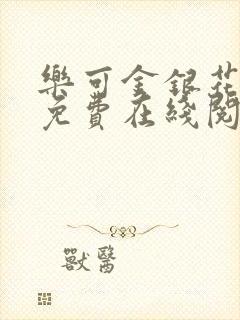 樂可金銀花
免費在綫閱
獸醫